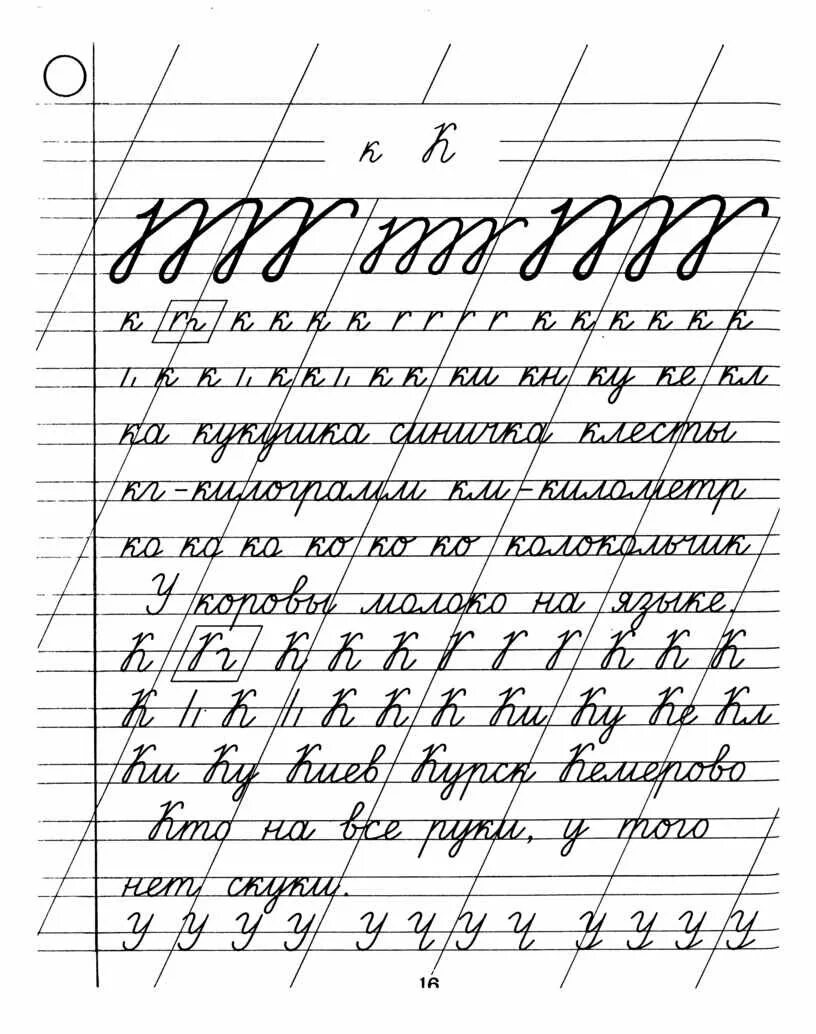 к К
к к к к к г г г г к к к к к к
к к к к к к ки кн ку ке кл
ка кукушка синичка клесты
кг - килограмм км - километр
ка ка ка ко ко ко колокольчик
У коровы молоко на языке.
К К К К К К К
К К К К К Ки Ку Ке Кл
Ки Ку Киев Курск Кемерово
Кто на все руки, у того
нет скуки.
У У У У У Ч У Ч У У У У
16